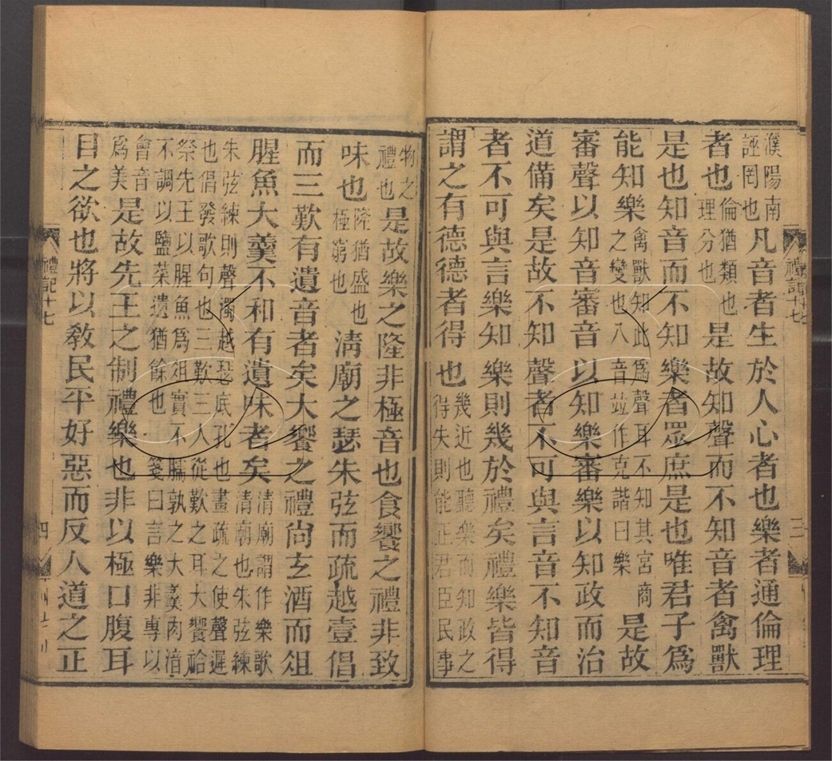 濮陽南
誣罔也凡音者生於人心者也樂者通倫理
者也倫猶類也理分也是故知聲而不知音者禽獸
是也知音而不知樂者眾庶是也唯君子爲
能知樂禽獸知此爲聲耳不知其宮商之變也八音竝作克諧曰樂是故
審聲以知音審音以知樂審樂以知政而治
道備矣是故不知聲者不可與言音不知音
者不可與言樂知樂則幾於禮矣禮樂皆得
謂之有德德者得也幾近也聽樂而知政之得失則能正君臣民事
禮記十七
三
物之禮也是故樂之隆非極音也食饗之禮非致
味也隆猶盛也極窮也淸廟之瑟朱弦而疏越壹倡
而三歎有遺音者矣大饗之禮尙玄酒而俎
腥魚大羹不和有遺味者矣淸廟謂作樂歌淸廟也朱弦練
朱弦練則聲濁越瑟底孔也畫疏之使聲遲
也倡發歌句也三歎三人從歎之耳大饗祫
祭先王以腥魚爲俎實不臑孰之大羹肉湆
不調以鹽菜遺猶餘也箋曰言樂非專以
會音爲美是故先王之制禮樂也非以極口腹耳
目之欲也將以敎民平好惡而反人道之正
禮記十七
四